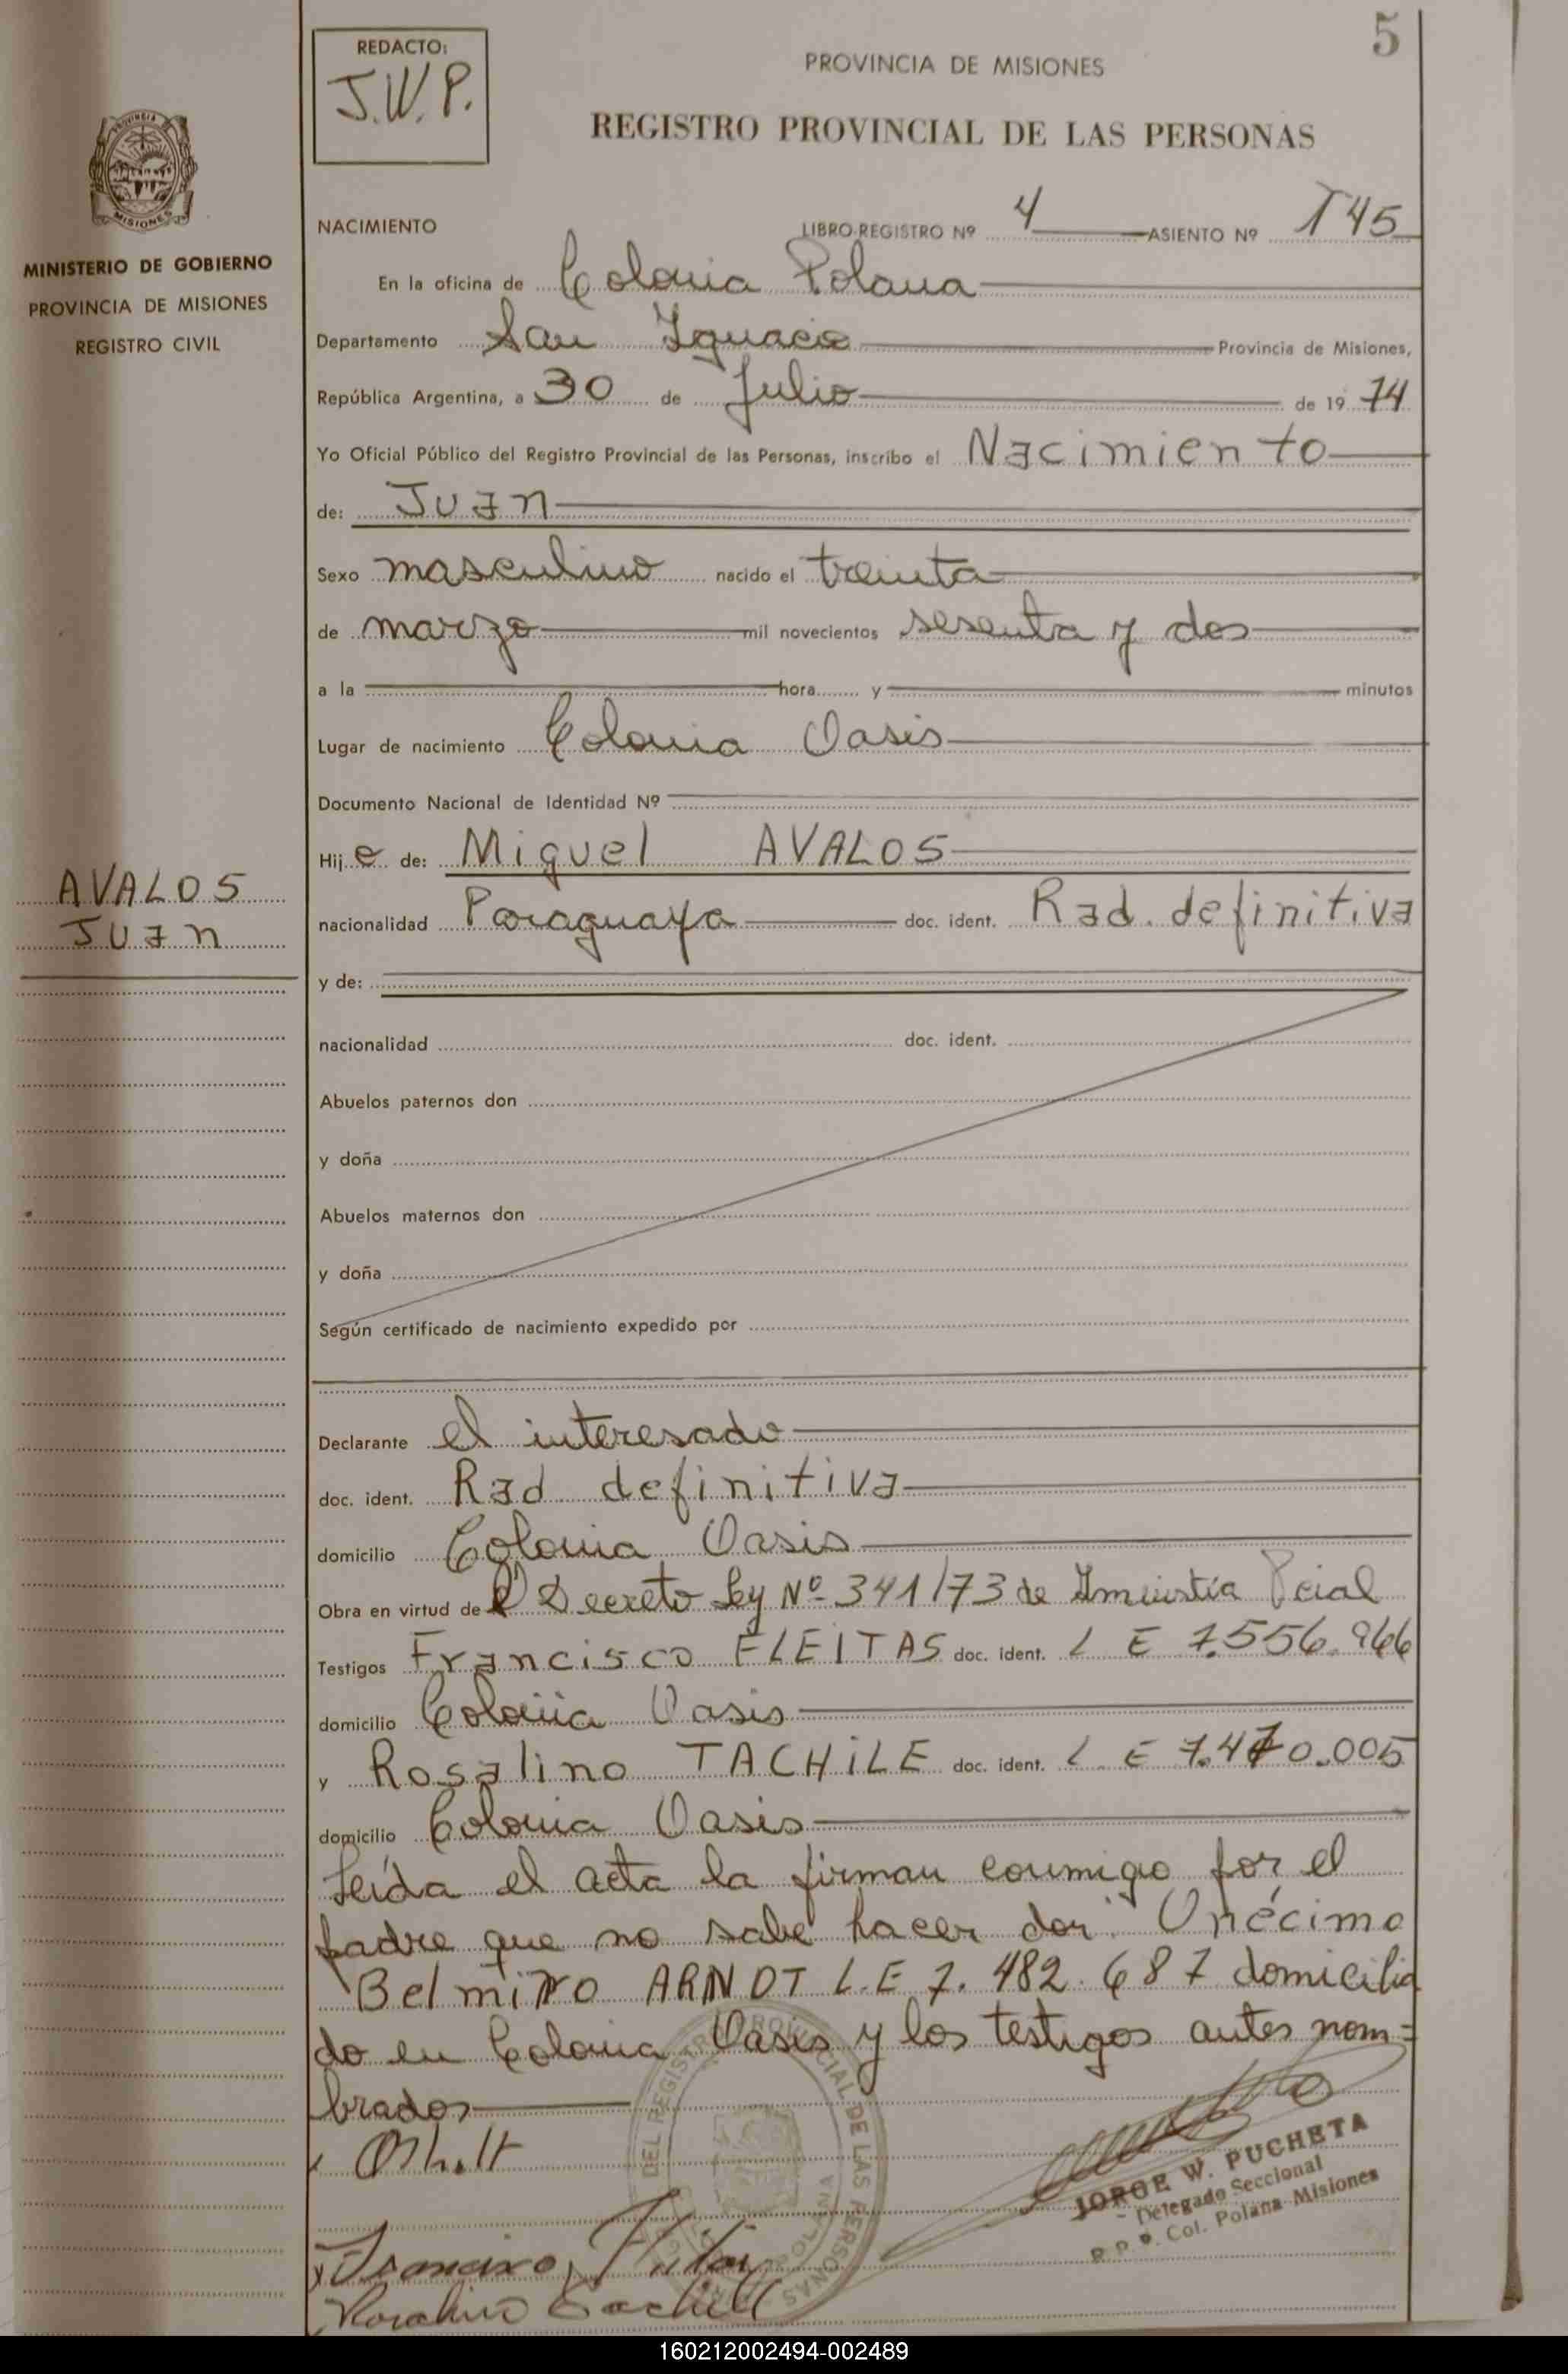 5
REDACTO:
J.W.P.
PROVINCIA DE MISIONES
REGISTRO PROVINCIAL DE LAS PERSONAS
PROVINCIA
MISIONES
MINISTERIO DE GOBIERNO
PROVINCIA DE MISIONES
REGISTRO CIVIL
NACIMIENTO LIBRO-REGISTRO Nº 4 ASIENTO Nº T45
En la oficina de Colonia Polana
Departamento San Ignacio Provincia de Misiones,
República Argentina, a 30 de Julio de 19 74
Yo Oficial Público del Registro Provincial de las Personas, inscribo el Nacimiento
de: Juan
Sexo masculino nacido el treinta
de marzo mil novecientos sesenta y dos
a la hora y minutos
Lugar de nacimiento Colonia Oasis
Documento Nacional de Identidad Nº
Hijo de: Miguel AVALOS
AVALOS
Juan
nacionalidad Paraguaya doc. ident. Rad. definitiva
y de:
nacionalidad doc. ident.
Abuelos paternos don
y doña
Abuelos maternos don
y doña
Según certificado de nacimiento expedido por
Declarante el interesado
doc. ident. Rad definitiva
domicilio Colonia Oasis
Obra en virtud de l Decreto Ley Nº 341/73 de Amnistía Pcial
Testigos Francisco FLEITAS doc. ident. L E 7.556.966
domicilio Colonia Oasis
y Rosalino TACHiLE doc. ident. L E 7.470.005
domicilio Colonia Oasis
Leída el acta la firman conmigo por el
padre que no sabe hacer don Onécimo
Belmiro ARNDT L.E 7.482.687 domicilia
do en Colonia Oasis y los testigos antes nom=
brados
JORGE W. PUCHETA
Delegado Seccional
R. P. P. Col. Polana - Misiones
DEL REGISTRO PROVINCIAL DE LAS PERSONAS
POLANA
Francisco Fleitas
Rosalino Tachile
160212002494-002489